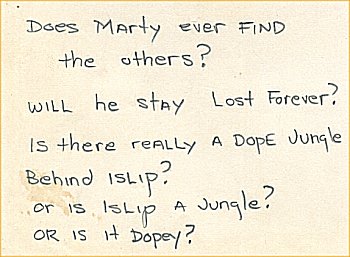 Does Marty ever FIND
the others?
WILL he stay Lost Forever?
Is there reALLY A DOPE Jungle
Behind ISLIP?
or is ISLIP A Jungle?
OR is it Dopey?